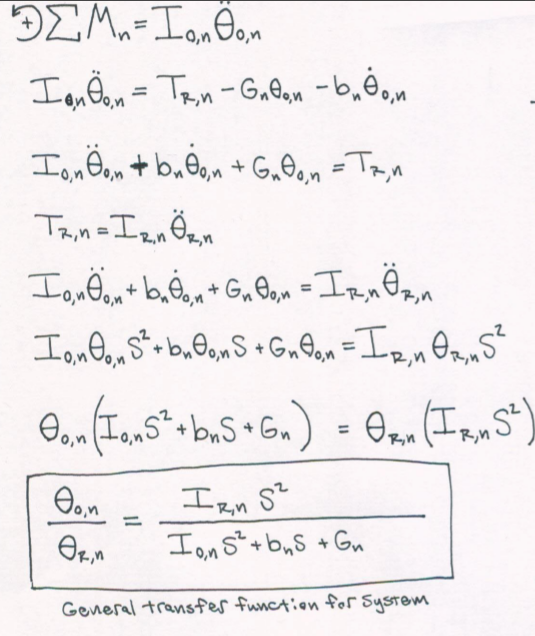 ↺+ ΣMₙ = I₀,ₙ θ̈₀,ₙ
I₀,ₙ θ̈₀,ₙ = T_R,ₙ − Gₙθ₀,ₙ − bₙθ̇₀,ₙ
I₀,ₙ θ̈₀,ₙ + bₙθ̇₀,ₙ + Gₙθ₀,ₙ = T_R,ₙ
T_R,ₙ = I_R,ₙ θ̈_R,ₙ
I₀,ₙ θ̈₀,ₙ + bₙθ̇₀,ₙ + Gₙθ₀,ₙ = I_R,ₙ θ̈_R,ₙ
I₀,ₙ θ₀,ₙ S² + bₙθ₀,ₙ S + Gₙθ₀,ₙ = I_R,ₙ θ_R,ₙ S²
θ₀,ₙ (I₀,ₙ S² + bₙS + Gₙ) = θ_R,ₙ (I_R,ₙ S²)
θ₀,ₙ / θ_R,ₙ = I_R,ₙ S² / I₀,ₙ S² + bₙS + Gₙ
General transfer function for System